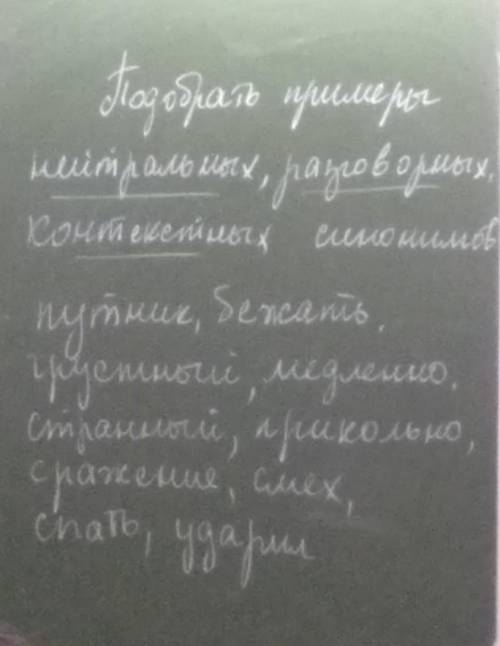 Подобрать примеры
нейтральных, разговорных,
контекстных синонимов
путник, бежать.
грустный, медленно.
странный, прикольно,
сражение, смех,
спать, ударил